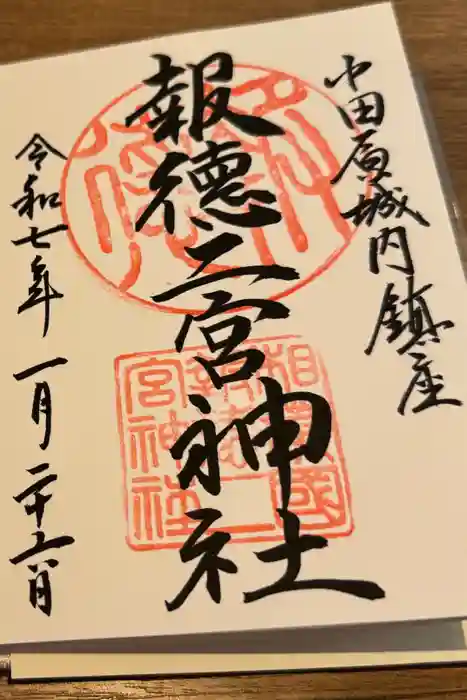 小田原城内鎮座
報徳二宮神社
令和七年一月二十六日
相模國
報徳二
宮神社